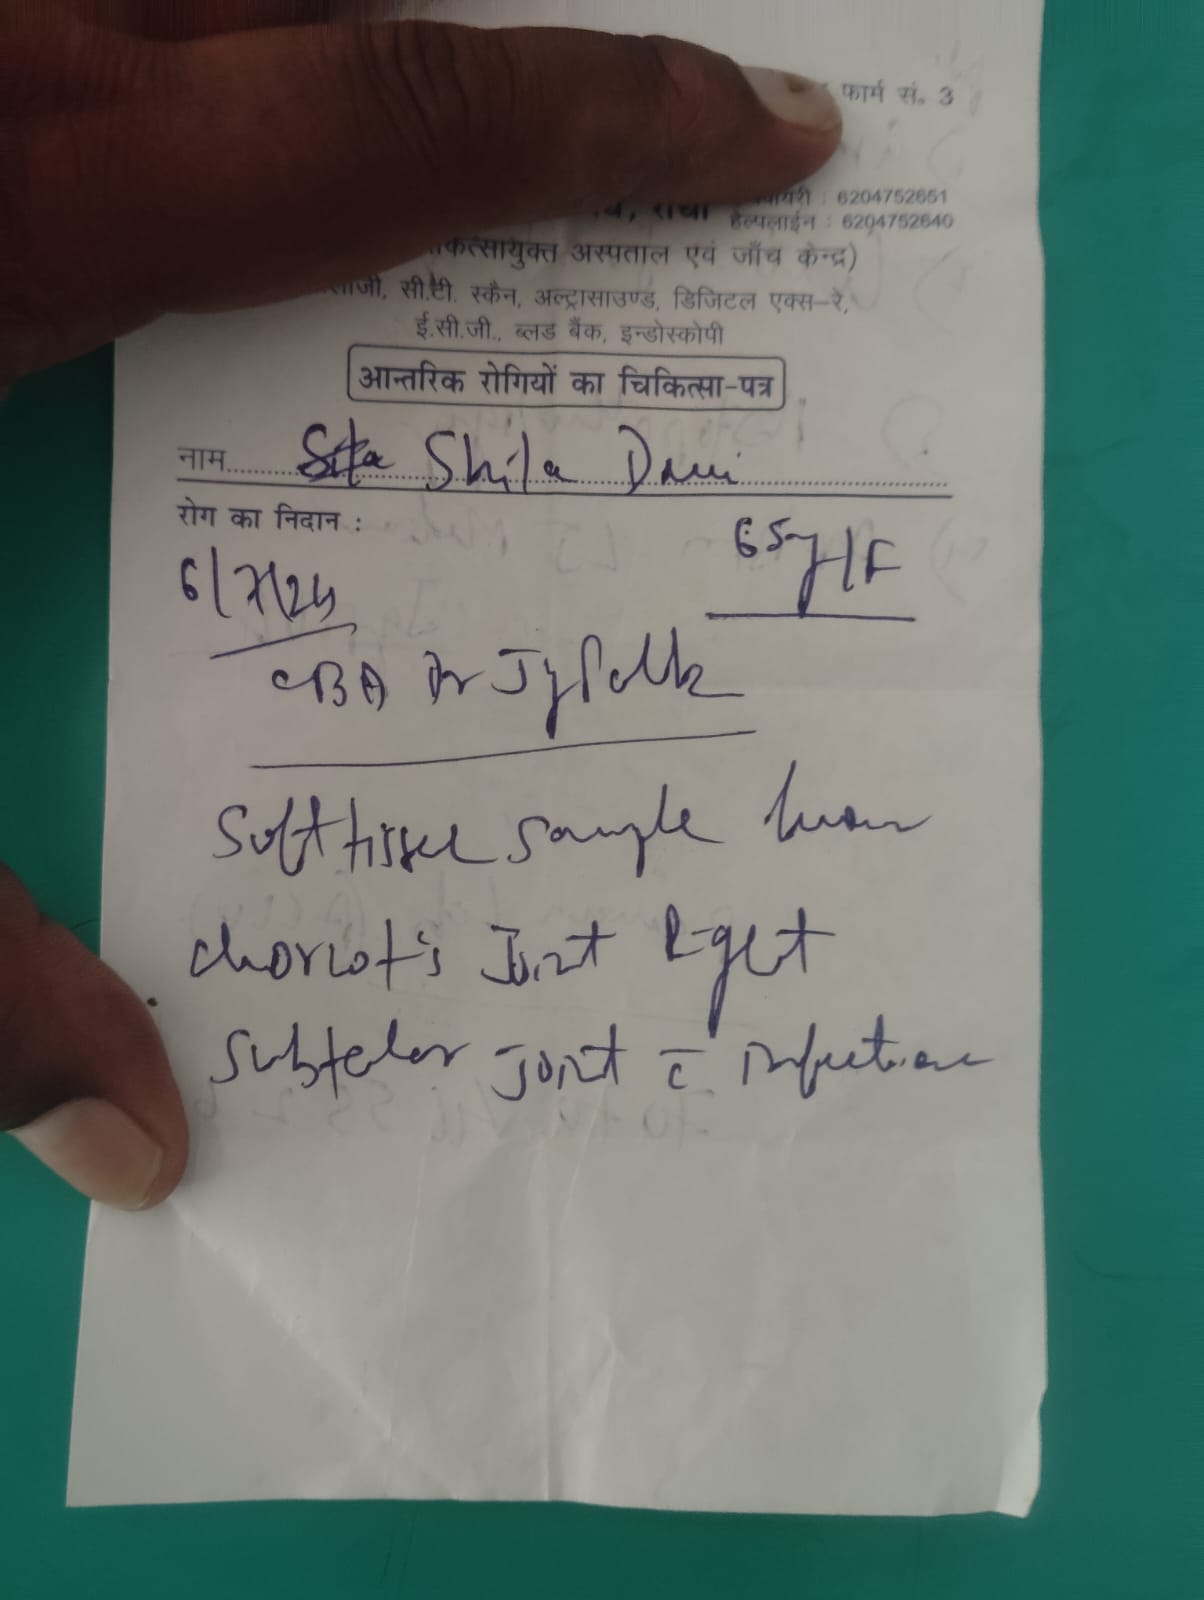 फार्म सं. 3
: 6204752651
हेल्पलाईन : 6204752640
अस्पताल एवं जाँच केन्द्र)
सी.टी. स्कैन, अल्ट्रासाउण्ड, डिजिटल एक्स-रे,
ई.सी.जी., ब्लड बैंक, इन्डोस्कोपी
आन्तरिक रोगियों का चिकित्सा-पत्र
नाम Shila Devi
रोग का निदान :
65y/F
6/7/24
Soft tissue sample from
charcot's Joint Right
Subtalar joint c̄ infection